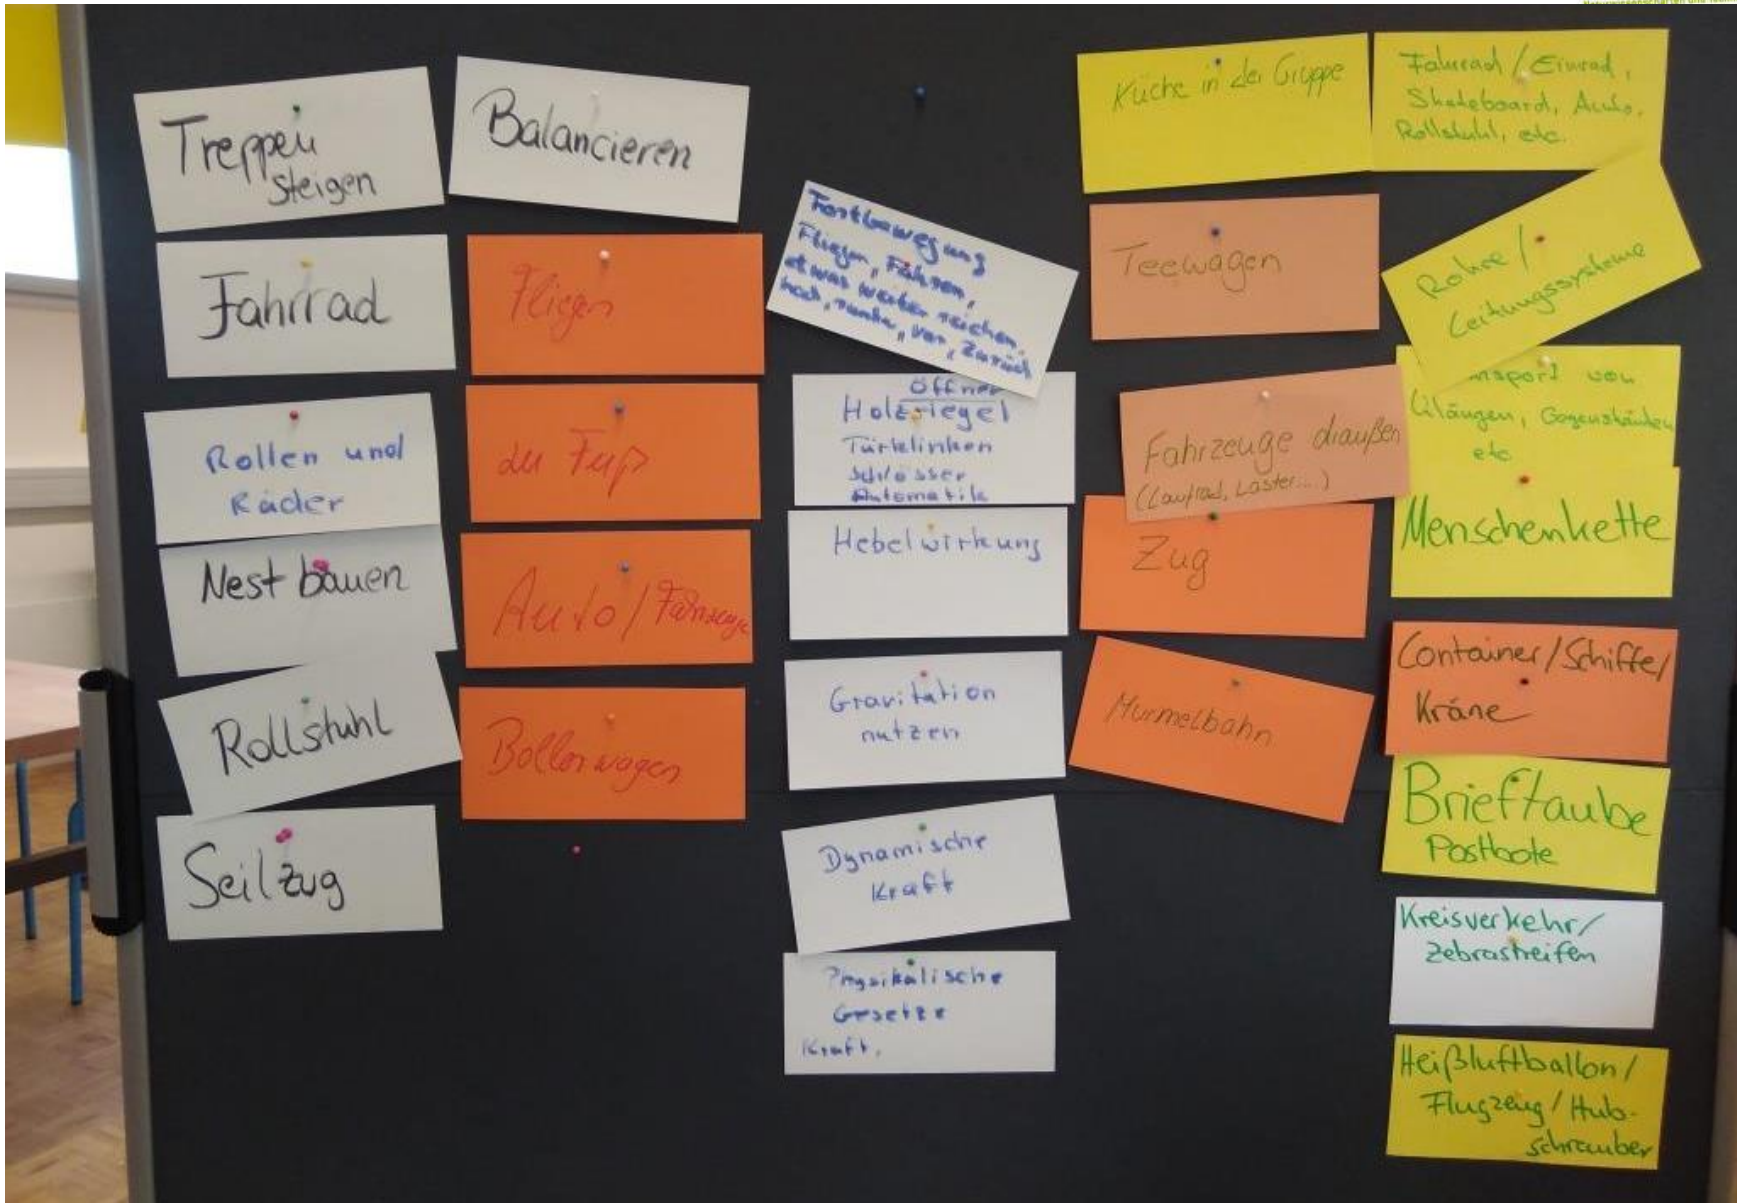 Treppen
steigen
Fahrrad
Rollen und
Räder
Nest bauen
Rollstuhl
Seilzug
Balancieren
Fliegen
der Fuß
Auto / Fahrzeuge
Bollerwagen
Fortbewegung
Fliegen, Fahren,
etwas weiter reichen,
hoch, runter, vor, zurück
Öffner
Holzriegel
Türklinken
Schlösser
Automatik
Hebelwirkung
Gravitation
nutzen
Dynamische
Kraft
Physikalische
Gesetze
Kraft.
Küche in der Gruppe
Teewagen
Fahrzeuge draußen
(Laufrad, Laster....)
Zug
Murmelbahn
Fahrrad / Einrad,
Skateboard, Auto,
Rollstuhl, etc.
Rohre /
Leitungssysteme
nsport von
Klängen, Gegenständen
etc
Menschenkette
Container/Schiffe/
Kräne
Brieftaube
Postbote
Kreisverkehr/
Zebrastreifen
Heißluftballon/
Flugzeug/Hub-
schrauber